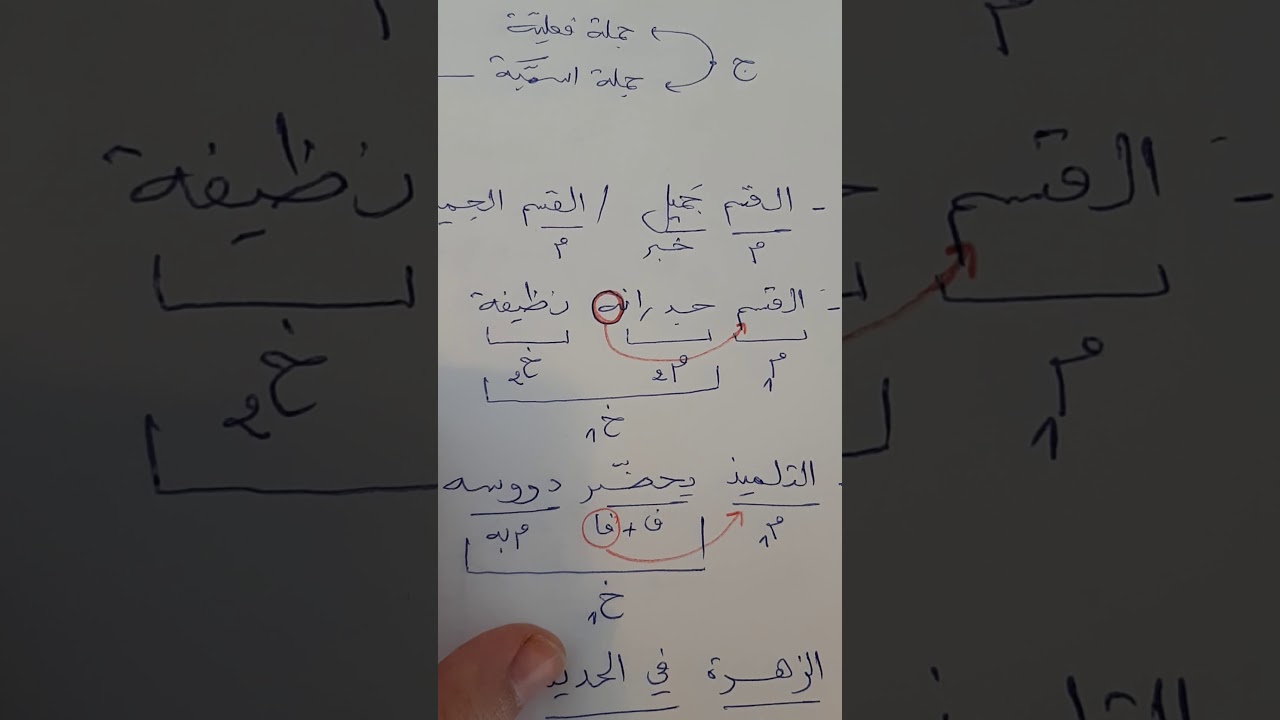 جملة فعلية
ج
جملة اسميّة
- القسم جَميل / القسم الجميـ
م خبر م
- القسم جدرانه نظيفة
م1 م2 خ2
خ1
- التلميذ يحضّر دروسه
م1 ف + فا م به
خ1
الزهرة في الحديـ